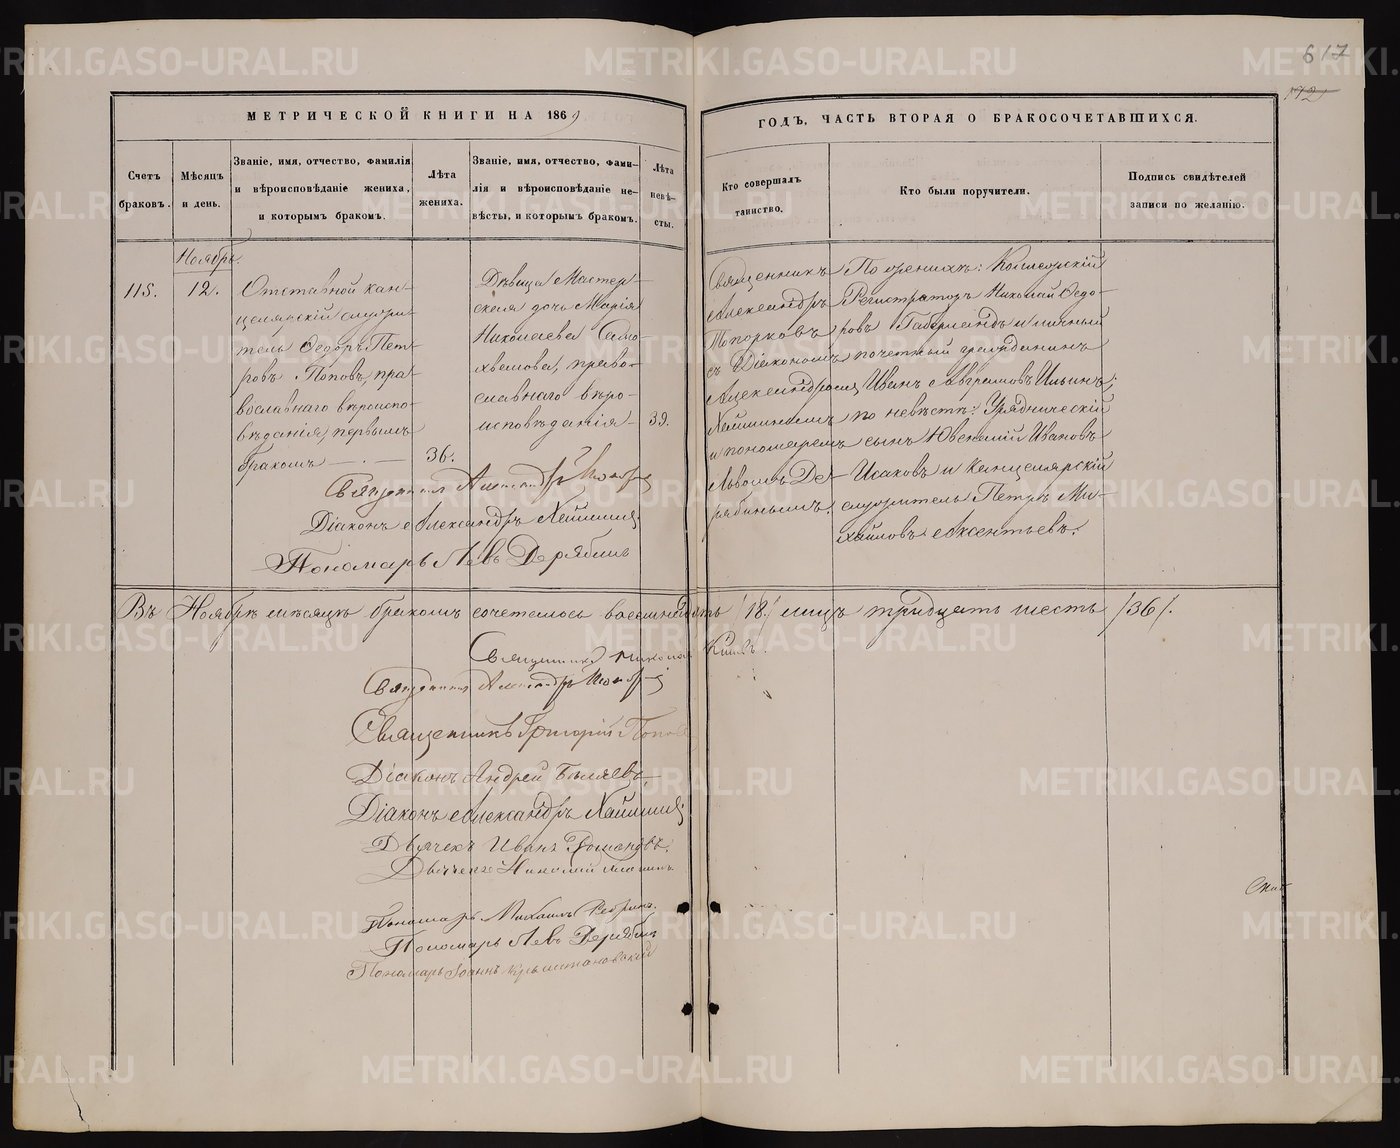 617
МЕТРИЧЕСКОЙ КНИГИ НА 1869
ГОДЪ, ЧАСТЬ ВТОРАЯ О БРАКОСОЧЕТАВШИХСЯ.
Счетъ
браковъ.
Мѣсяцъ
и день.
Званіе, имя, отчество, фамилія
и вѣроисповѣданіе жениха,
и которымъ бракомъ.
Лѣта
жениха.
Званіе, имя, отчество, фами-
лія и вѣроисповѣданіе не-
вѣсты, и которымъ бракомъ.
Лѣта
невѣ-
сты.
Кто совершалъ
таинство.
Кто были поручители.
Подпись свидѣтелей
записи по желанію.
Ноябрь.
115.
12.
Отставной кан-
целярскій служи-
тель Ѳедоръ Пет-
ровъ Поповъ, пра-
вославнаго вѣроиспо-
вѣданія, первымъ
бракомъ
36.
Дѣвица Мастер-
ская дочь Марія
Николаева Само-
хвалова, право-
славнаго вѣро-
исповѣданія
39.
Священникъ
Александръ
Топорковъ
съ Діакономъ
Александромъ
и пономаремъ
Львомъ Де-
рябинымъ.
По женихѣ: Коллежскій
Регистраторъ Николай Ѳедо-
ровъ и личный
почетный гражданинъ
Иванъ Аврамовъ Ильинъ;
по невѣстѣ: Урядническій
сынъ Ювеналій Ивановъ
Исаковъ и Канцелярскій
служитель Петръ Ми-
хайловъ Аксентьевъ.
Священникъ Александръ Топорковъ
Діаконъ Александръ
Пономарь Левъ Дерябинъ
Въ Ноябрѣ мѣсяцѣ бракомъ сочеталось восемнадцать /18/ лицъ тридцать шесть /36/.
Священникъ Николай
Священникъ Александръ Топорковъ
Священникъ Григорій Поповъ
Діаконъ Андрей Бѣляевъ
Діаконъ Александръ
Дьячекъ Иванъ Романовъ.
Дьячекъ Николай
Пономарь Михаилъ
Пономарь Левъ Дерябинъ
Пономарь Іоаннъ
METRIKI.GASO-URAL.RU